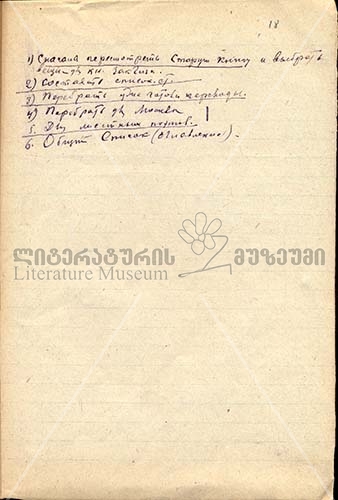 18
1) Сначала пересмотреть Старую Книгу и выбрать
вещи для кн. Заккниги.
2) Составить список.
3) Перебрать уже готов. переводы.
4) Перебрать для Москва
5. Для местных поэтов.
6. Общий Список (оглавление).
ლიტერატურის მუზეუმი
Literature Museum